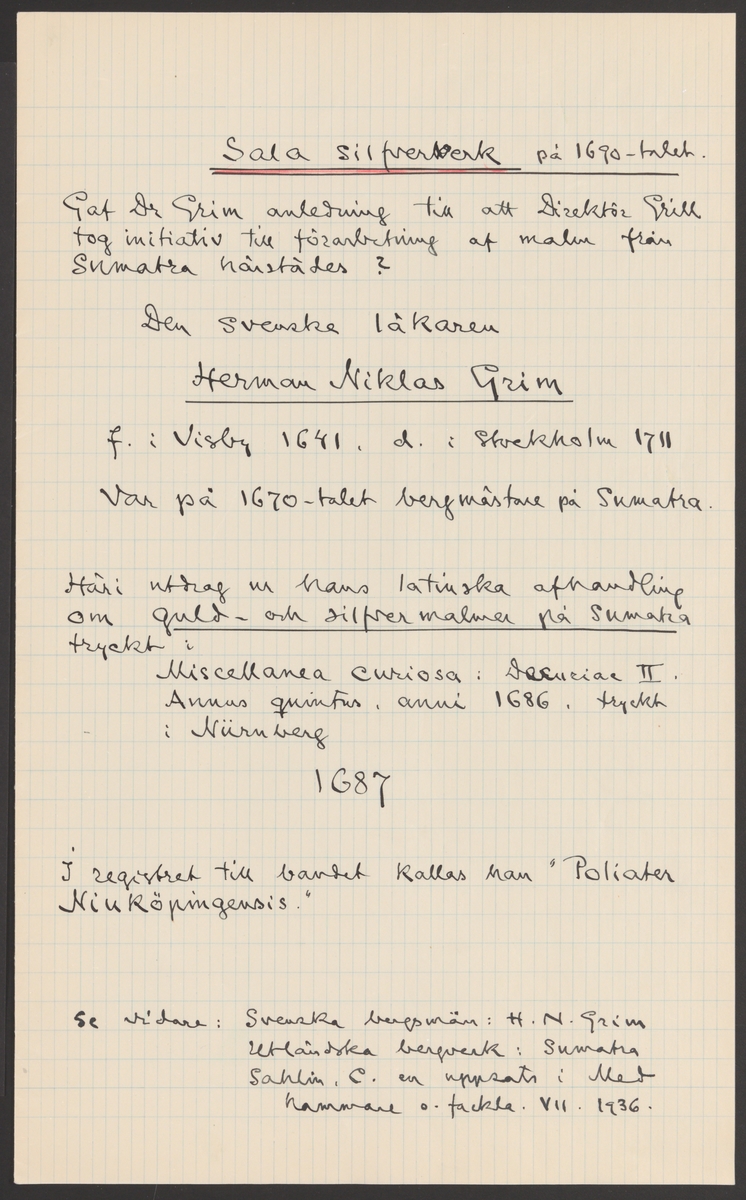 Sala silfververk på 1690-talet.
Gaf Dr Grim anledning till att Direktör Grill
tog initiativ till förarbetning af malm från
Sumatra härstädes ?
Den svenske läkaren
Herman Niklas Grim
f. i Visby 1641. d. i Stockholm 1711
Var på 1670-talet bergmästare på Sumatra.
Häri utdrag ur hans latinska afhandling
om guld- och silfvermalmer på Sumatra
tryckt i
Miscellanea curiosa : Decuriae II.
Annus quintus, anni 1686, tryckt
i Nürnberg
1687
I registret till bandet kallas han "Poliater
Niuköpingensis."
Se vidare: Svenska bergsmän: H. N. Grim
Utländska bergverk: Sumatra
Sahlin, C. en uppsats i Med
hammare o. fackla. VII. 1936.